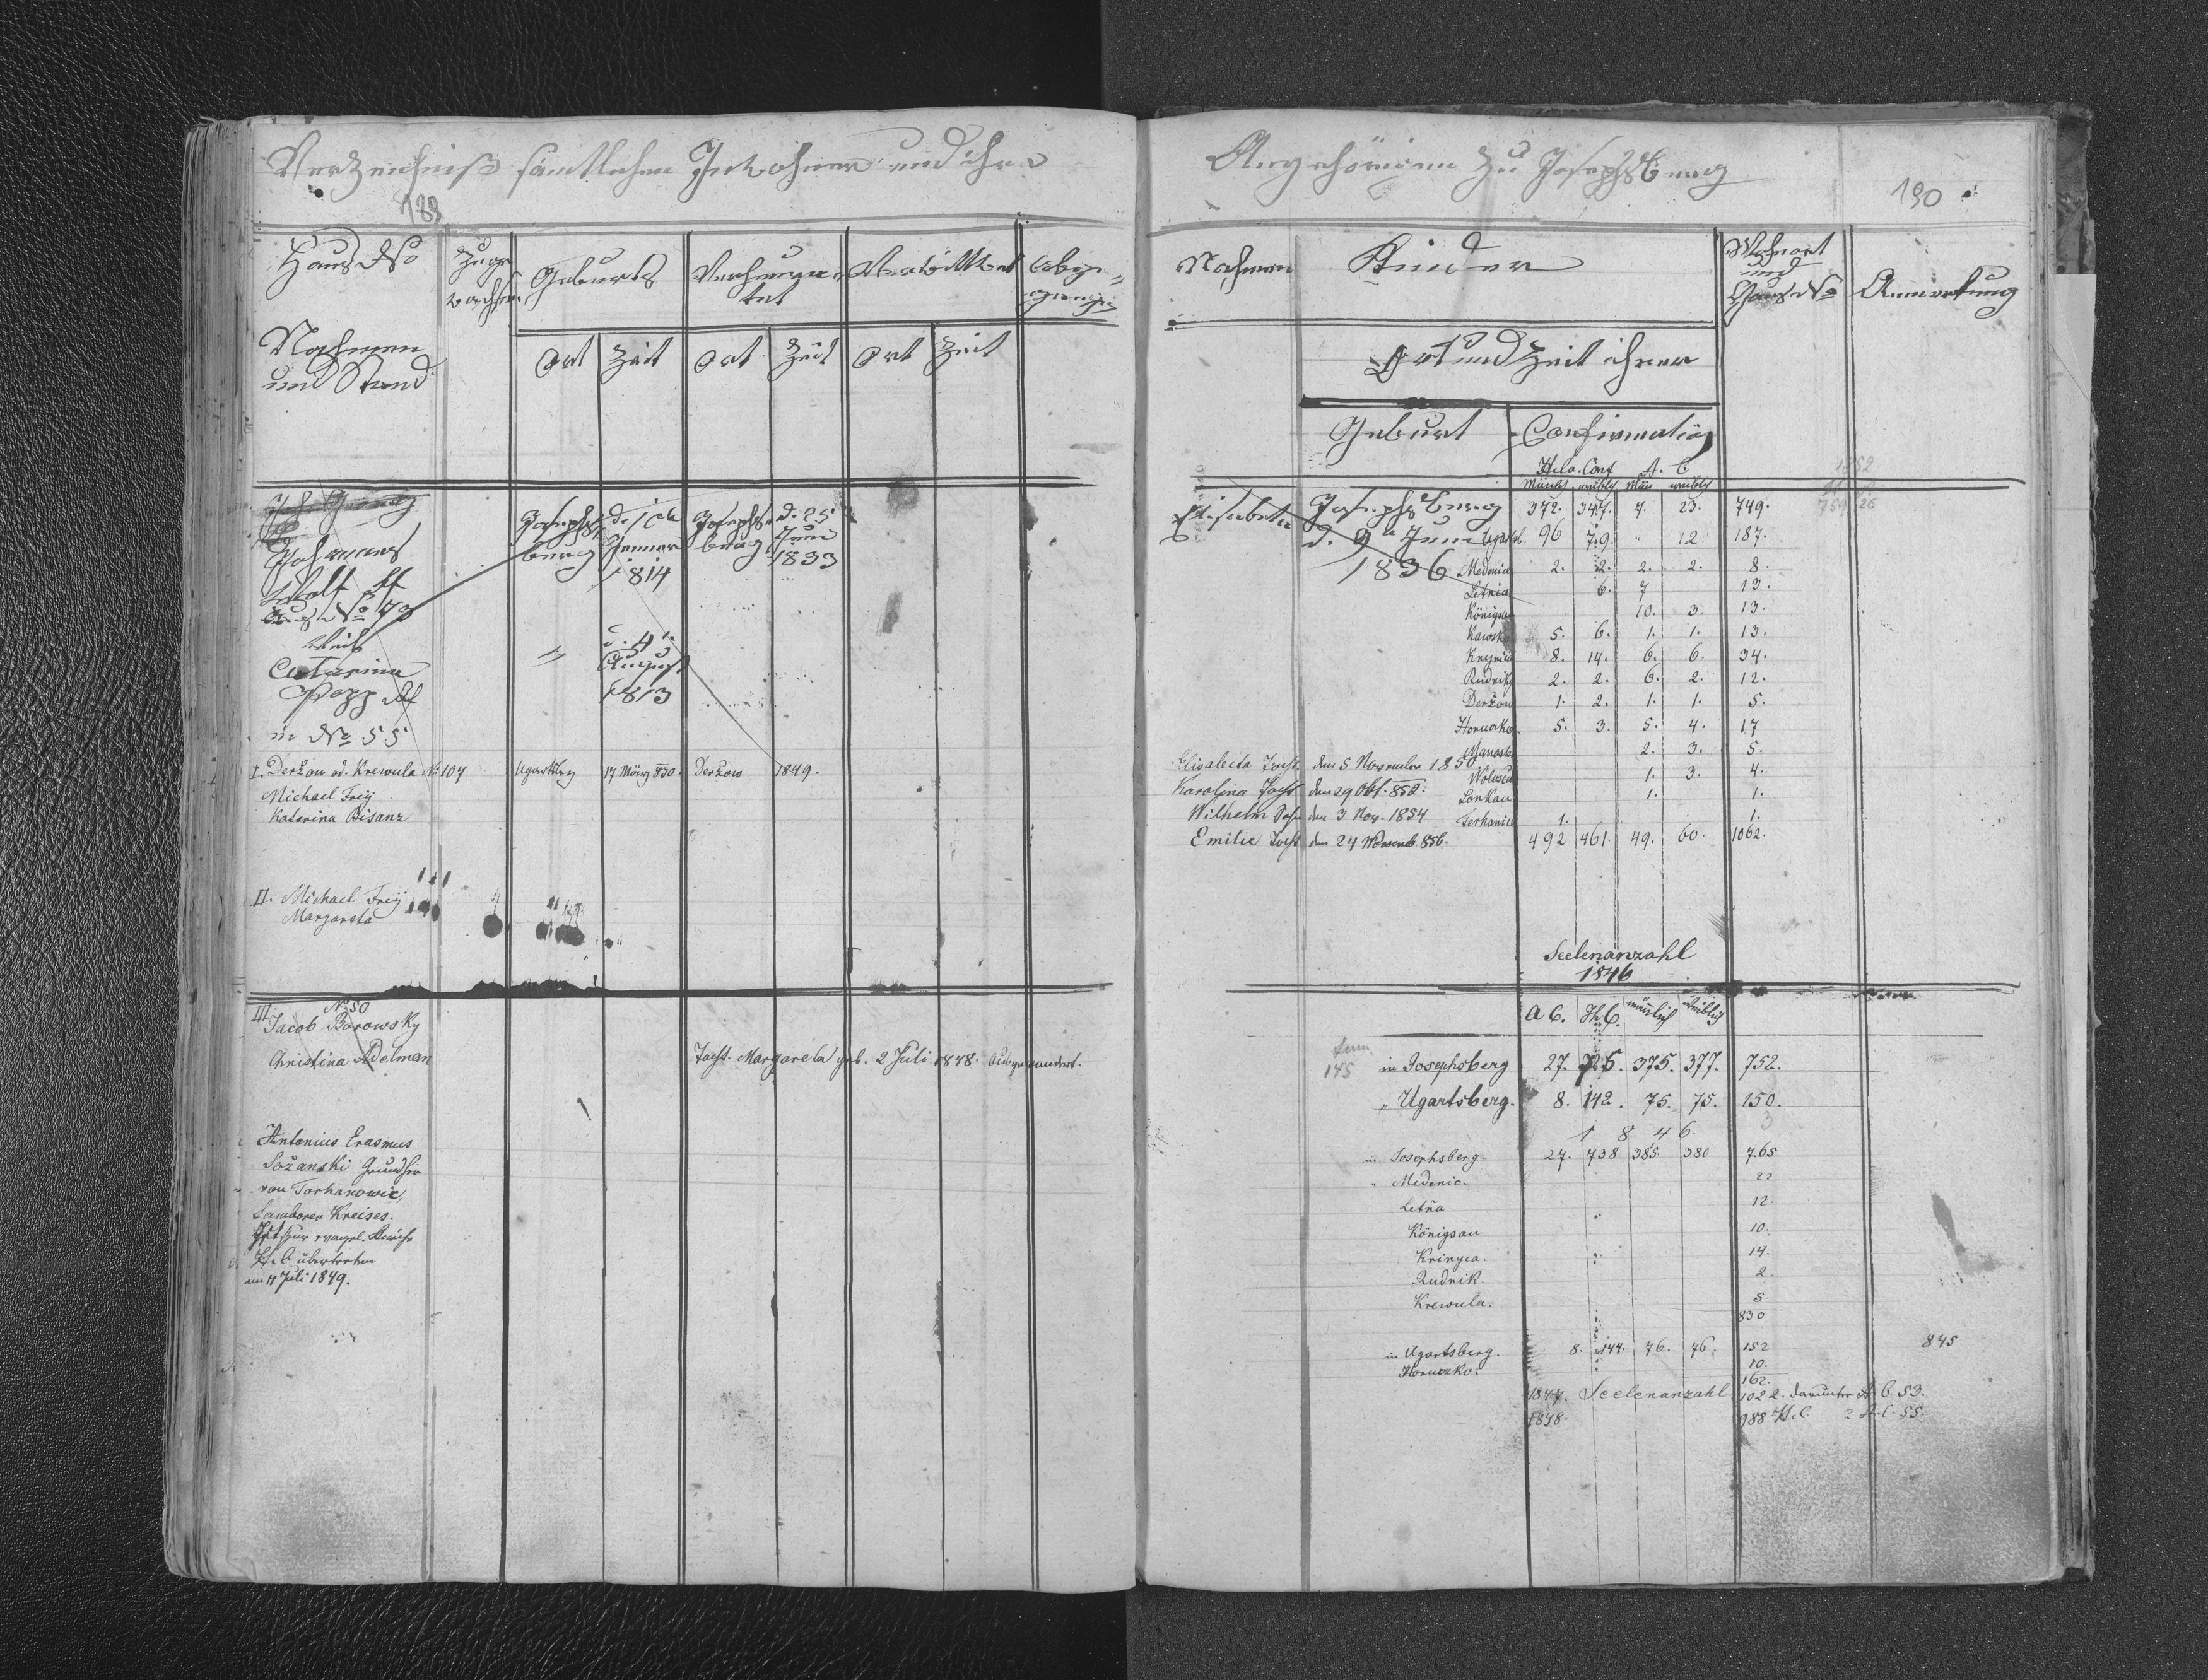 Verzeichniß sämtlicher Inwohner und ihre
189
Haus No
Nahmen
und Stand
Zuge
wachsen
Geburts
Ort Zeit
Verheura-
tet
Ort Zeit
Verwittwet
Ort Zeit
Abge-
gangen
Johannes
Wolf
Haus No 79
Josephs-
berg
Jenner
1814
Josephs-
berg
d. 25
Juni
1833
Weib
Catarina
Popp
in No 55
"
d. 4
August
1813
I. Deržow od. Krewula No 107 Ugartsberg 17 März 830. Deržow 1849.
Michael Freÿ
Katarina Bisanz
II. Michael Freÿ
Margareta
III. No 50
Jacob Borowsky
Christina Adelman
Tocht. Margareta geb. 2 Juli 1848. ausgewandert.
Antonius Erasmus
Sožanski Grundhr
von Torhanowice,
Samborer Kreises.
Ist zur evangel. Kirche
H.C. übertreten
am 11 Juli 1849.
Angehörigen zu Josephsberg
190
Nahmen
Kinder
Ort und Zeit ihrer
Geburt
Confirmation
Wohnort
und
Haus No
Anmerkung
Helv. Conf A. C
Männl. weibl. Män weibl.
Elisabeta Josephsberg
d. 9 Juni
1836
372. 347. 7. 23. 749.
96 79 " 12. 187.
Medenice 2. 2. 2. 2. 8.
Letnia 6. 7 13.
Königsau 10. 3. 13.
Kawsko 5. 6. 1. 1. 13.
Krynica 8. 14. 6. 6. 34.
Rudnik 2. 2. 6. 2. 12.
Deržow 1. 2. 1. 1. 5.
Horucko 5. 3. 5. 4. 17
2. 3. 5.
Elisabeta Tocht. den 5 November 1850
1. 3. 4.
Karolina Tocht den 29 Okt. 852.
1. 1.
Wilhelm Sohn den 3 Nov. 1854
1. 1.
Emilie Tocht den 24 Novemb. 856.
492 461. 49. 60. 1062.
Seelenanzahl
1846
A C. H.C. männlich weiblich
145 in Josephsberg 27. 725. 375. 377. 752.
" Ugartsberg. 8. 142. 75. 75. 150.
3
1 8 4 6
in Josephsberg 27. 738 385. 380 765
" Medenic. 22
Letňa 12.
Königsau 10.
Krinyca. 14.
Rudnik 2
Krewula. 5
830
in Ugartsberg. 8. 144. 76. 76. 152
845
Horuczko. 10.
162.
1847. Seelenanzahl 1022. darunter A. C. 53.
1848. 988 H.C. 2 A.C. 55.